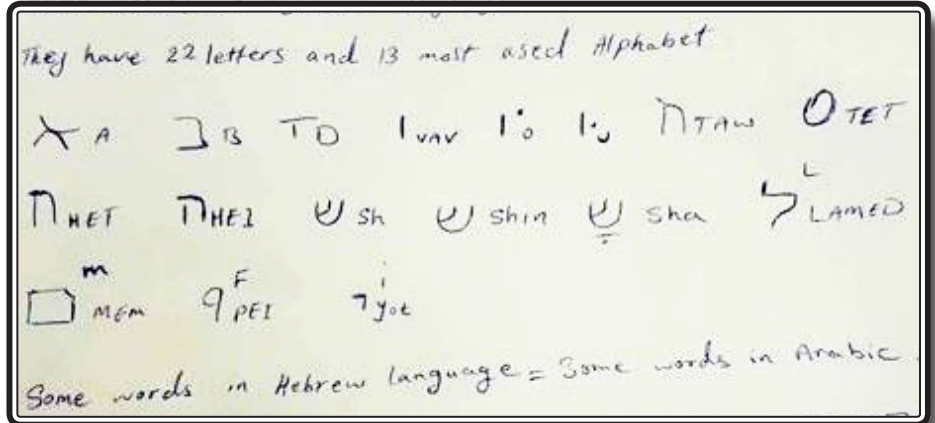 They have 22 letters and 13 most ased Alphabet
א A ב B ד D ו VAV וֹ o וּ u ת TAW ט TET
ח HET ה HEI ש sh ש shin שָׁ sha ל L LAMED
ם m MEM ף F PEI י i yot
Some words in Hebrew language = Some words in Arabic.